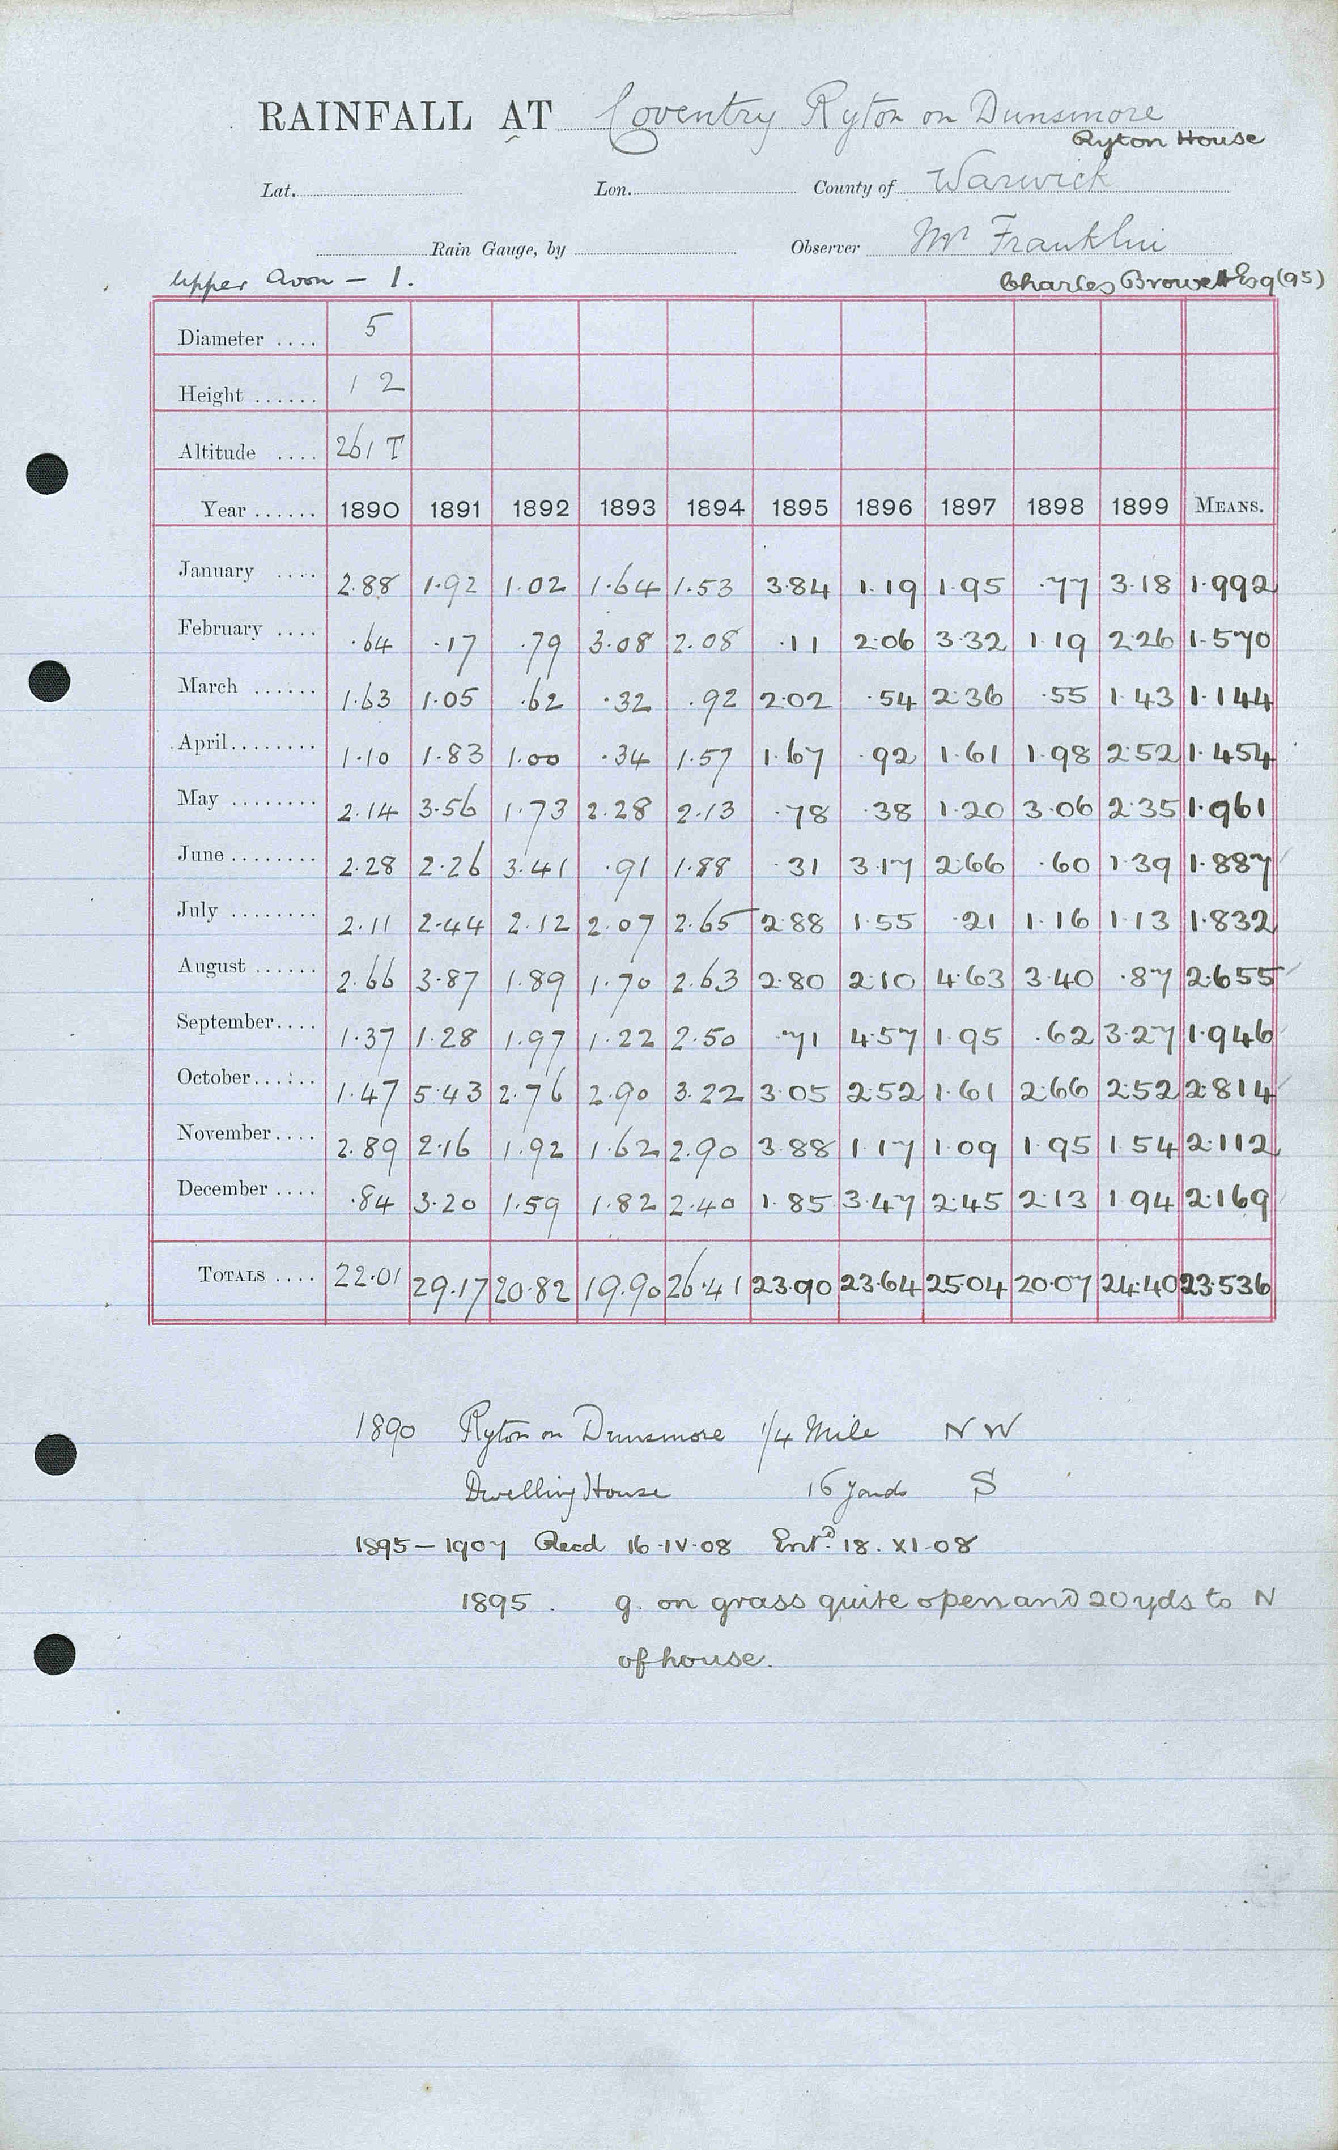 RAINFALL AT Coventry Ryton on Dunsmore
Ryton House
Lat. Lon. County of Warwick
Rain Gauge, by Observer Mr Franklin
Upper Avon - 1. Charles Browett Esq (95)
Diameter .... 5
Height ...... 1 2
Altitude .... 261 T
Year ...... 1890 1891 1892 1893 1894 1895 1896 1897 1898 1899 MEANS.
January .... 2.88 1.92 1.02 1.64 1.53 3.84 1.19 1.95 .77 3.18 1.992
February .... .64 .17 .79 3.08 2.08 .11 2.06 3.32 1.19 2.26 1.570
March ...... 1.63 1.05 .62 .32 .92 2.02 .54 2.36 .55 1.43 1.144
April........ 1.10 1.83 1.00 .34 1.57 1.67 .92 1.61 1.98 2.52 1.454
May ........ 2.14 3.56 1.73 2.28 2.13 .78 .38 1.20 3.06 2.35 1.961
June ........ 2.28 2.26 3.41 .91 1.88 .31 3.17 2.66 .60 1.39 1.887
July ........ 2.11 2.44 2.12 2.07 2.65 2.88 1.55 .21 1.16 1.13 1.832
August ...... 2.66 3.87 1.89 1.70 2.63 2.80 2.10 4.63 3.40 .87 2.655
September.... 1.37 1.28 1.97 1.22 2.50 .71 4.57 1.95 .62 3.27 1.946
October...... 1.47 5.43 2.76 2.90 3.22 3.05 2.52 1.61 2.66 2.52 2.814
November.... 2.89 2.16 1.92 1.62 2.90 3.88 1.17 1.09 1.95 1.54 2.112
December .... .84 3.20 1.59 1.82 2.40 1.85 3.47 2.45 2.13 1.94 2.169
TOTALS .... 22.01 29.17 20.82 19.90 26.41 23.90 23.64 25.04 20.07 24.40 23.536
1890 Ryton on Dunsmore 1/4 Mile N W
Dwelling House 16 yards S
1895 - 1907 Recd 16.IV.08 Entd. 18.XI.08
1895. g. on grass quite open and 20 yds to N
of house.